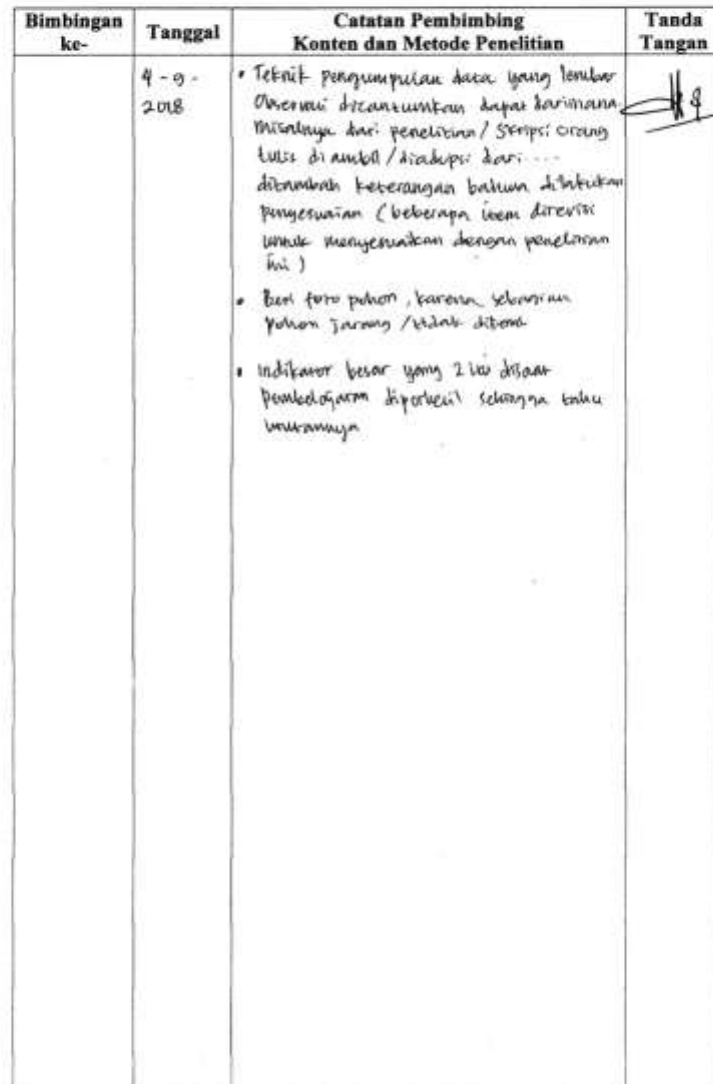 Bimbingan ke-
Tanggal
Catatan Pembimbing
Konten dan Metode Penelitian
Tanda Tangan
4 - 9 -
2018
• Teknik pengumpulan data yang lembar
Observasi dicantumkan dapat darimana
misalnya dari penelitian / skripsi orang
tulis di ambil / diadopsi dari ....
ditambah keterangan bahwa dilakukan
penyesuaian ( beberapa item direvisi
untuk menyesuaikan dengan penelitian
ini )
• Beri foto pohon, karena sebagian
pohon jarang / tidak
• Indikator besar yang 2 disaat
pembelajaran diperkecil sehingga tahu
urutannya